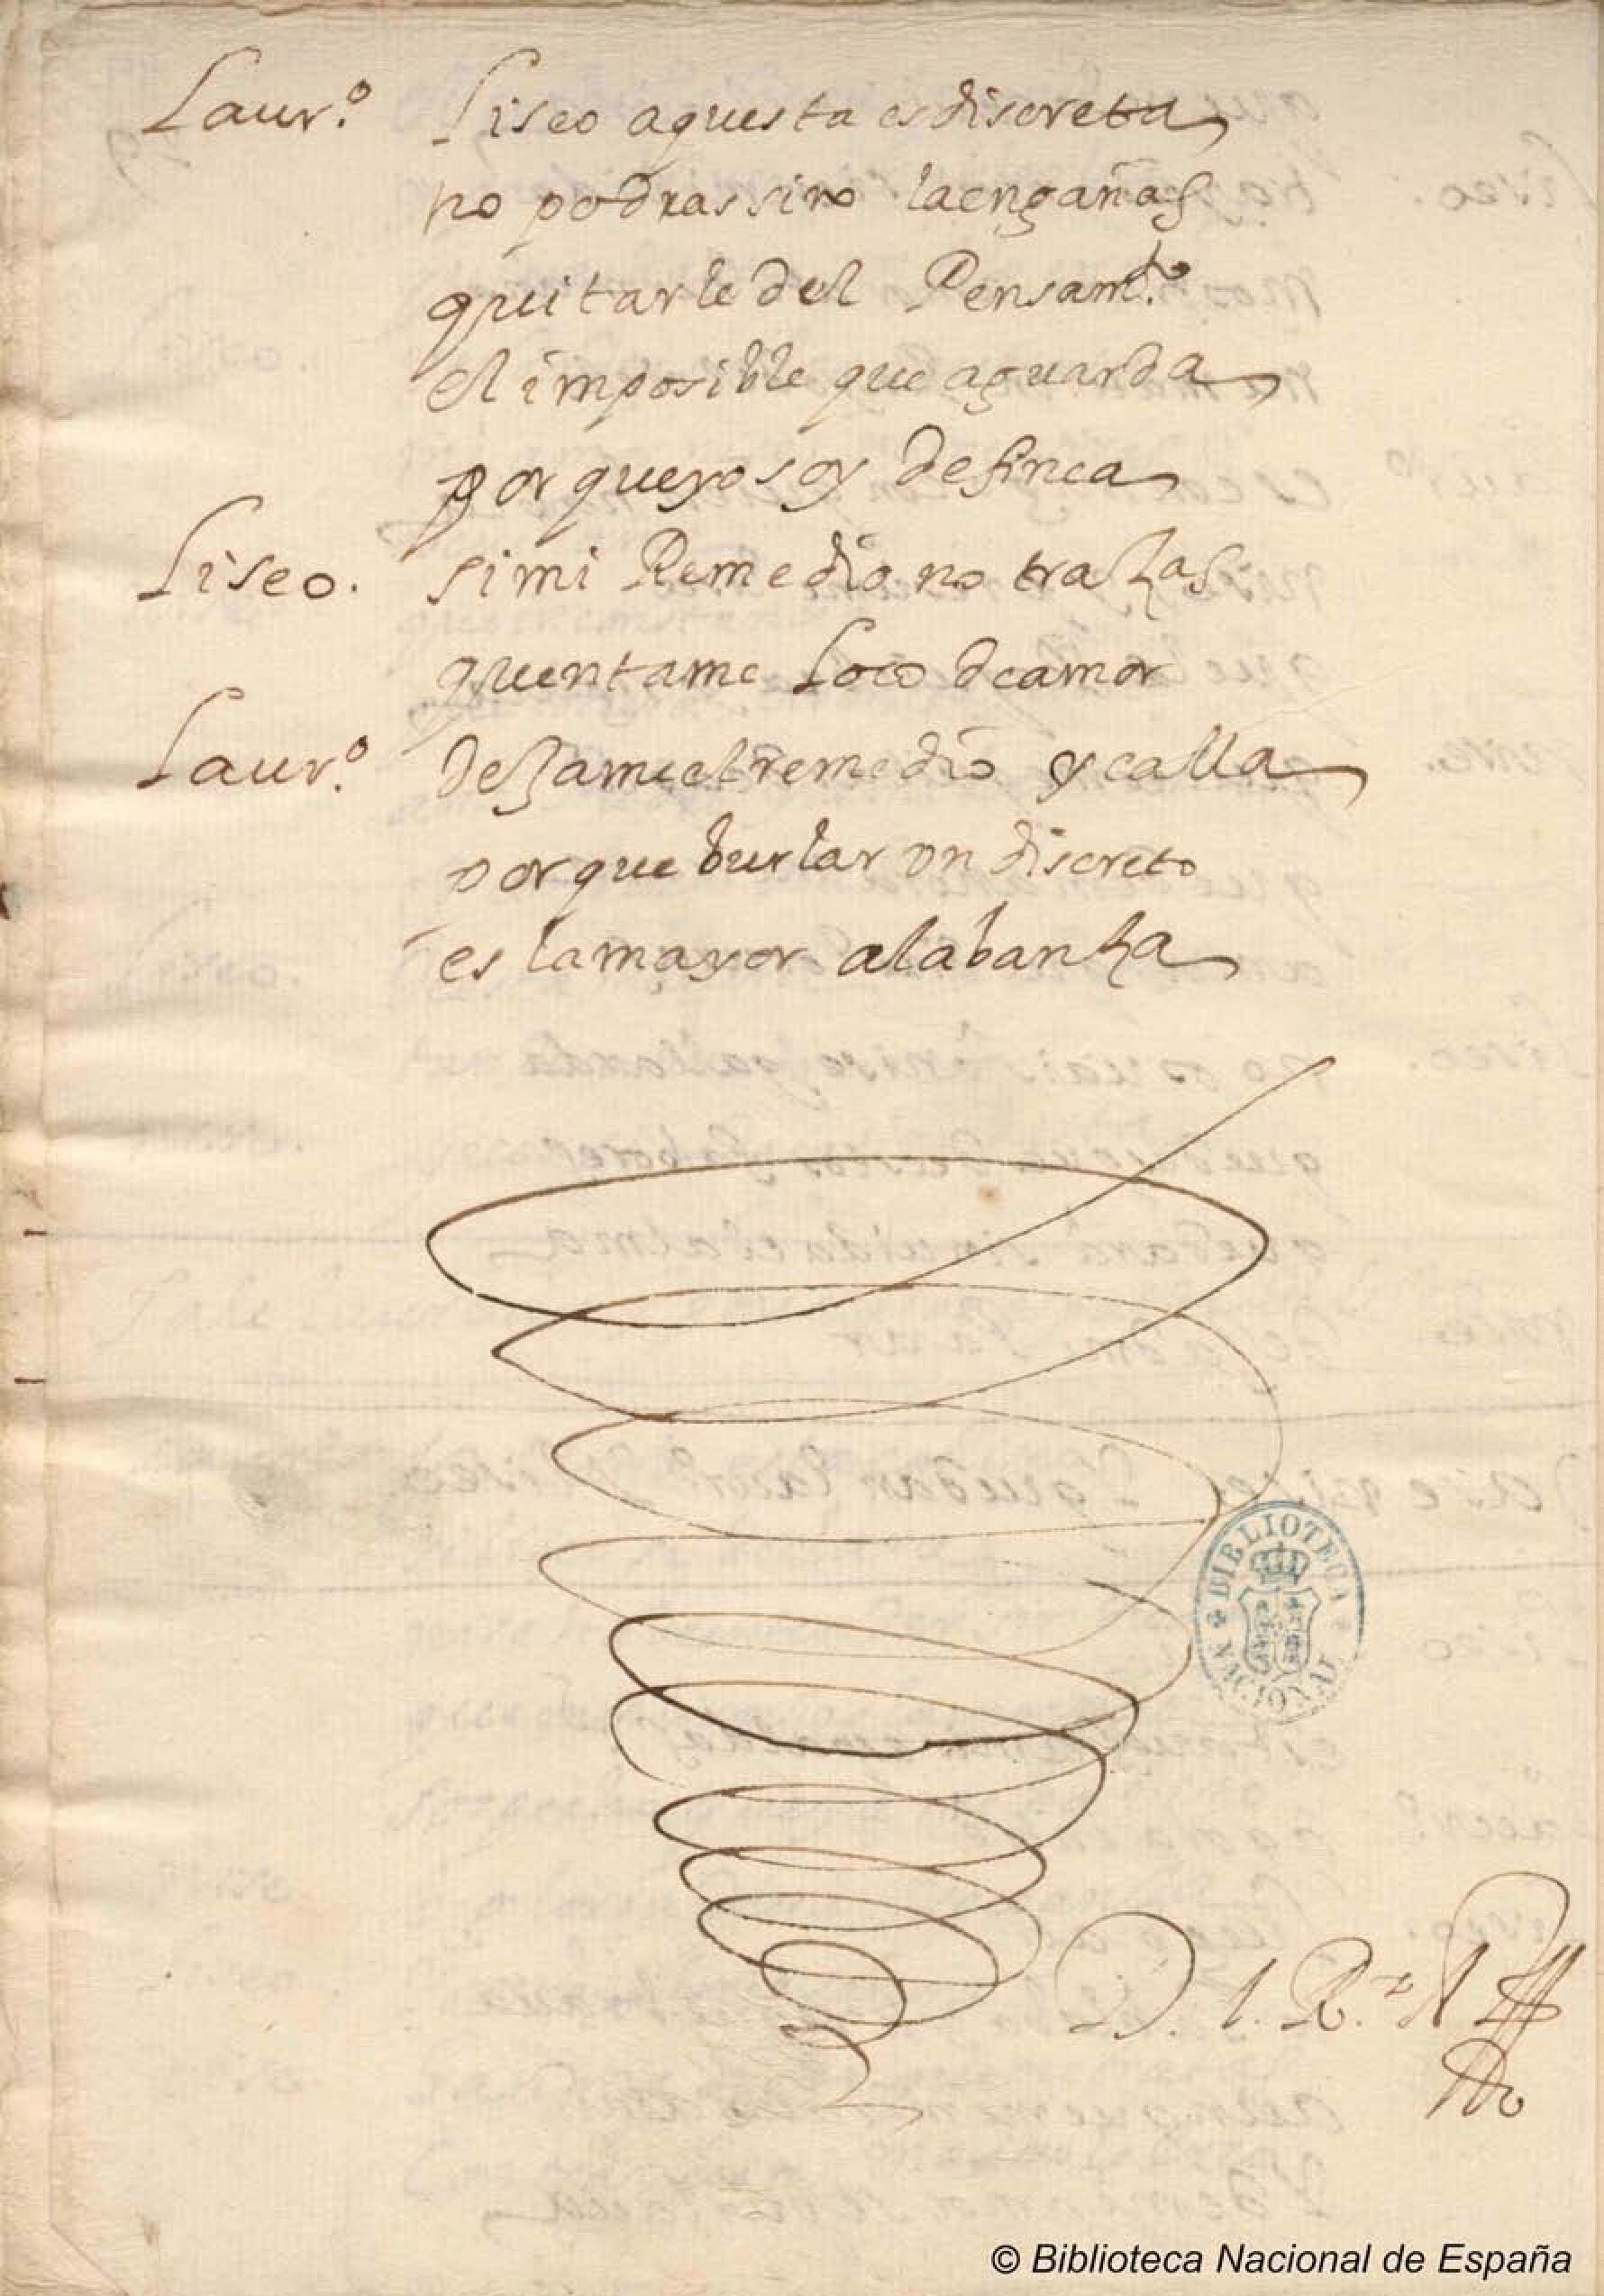 Laur.º Liseo aquesta es discreta
no podras si no la engañas
quitarle del Pensamᵗº.
el imposible que aguarda
porque yo soy de finea
Liseo. si mi Remedio no trazas
quentame Loco de amor
Laur.º dejame el remedio y calla
porque burlar vn discreto
es la mayor alabanza
BIBLIOTECA NACIONAL
© Biblioteca Nacional de España